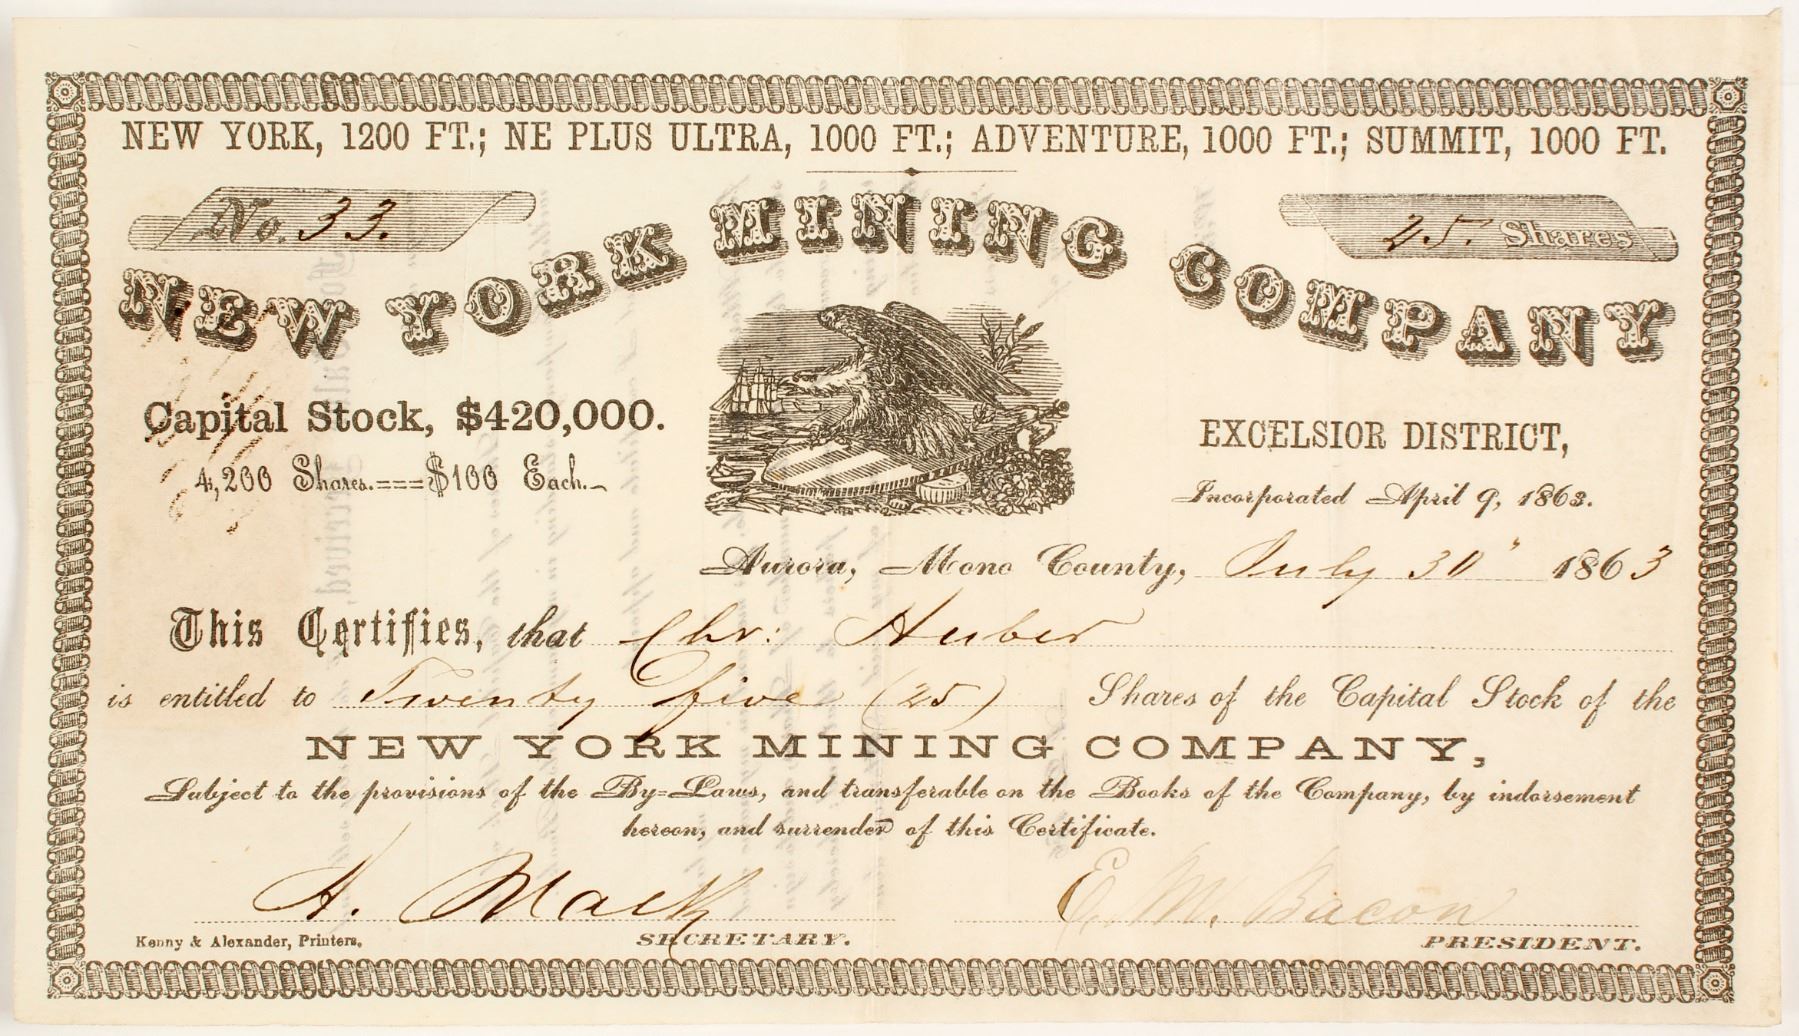 NEW YORK, 1200 FT.; NE PLUS ULTRA, 1000 FT.; ADVENTURE, 1000 FT.; SUMMIT, 1000 FT.
No. 33.
25. Shares
NEW YORK MINING COMPANY
Capital Stock, $420,000.
4,200 Shares.===$100 Each.
EXCELSIOR DISTRICT,
Incorporated April 9, 1863.
Aurora, Mono County, July 30" 1863
This Certifies, that Chr: Huber
is entitled to Twenty five (25) Shares of the Capital Stock of the
NEW YORK MINING COMPANY,
Subject to the provisions of the By=Laws, and transferable on the Books of the Company, by indorsement
hereon, and surrender of this Certificate.
A. Mack
E. M. Bacon
Kenny & Alexander, Printers,
SECRETARY.
PRESIDENT.